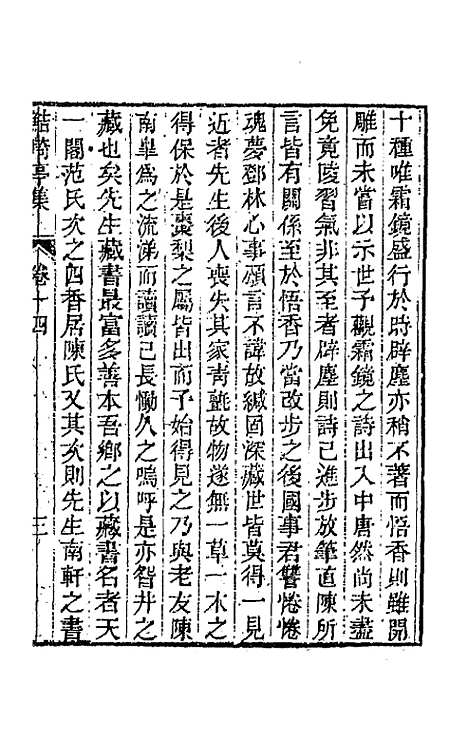 十種唯霜鏡盛行於時辟塵亦稍不著而悟香則雖開
雕而未嘗以示世予觀霜鏡之詩出入中唐然尚未盡
免竟陵習氣非其至者辟塵則詩已進步放筆直陳所
言皆有關係至於悟香乃當改步之後國事君讐惓惓
魂夢鄧林心事頗言不諱故緘固深藏世皆莫得一見
近者先生後人喪失其家靑氈故物遂無一草一木之
得保於是棗梨之屬皆出而予始得見之乃與老友陳
南臯爲之流涕而讀讀已長慟久之嗚呼是亦智井之
藏也矣先生藏書最富多善本吾鄉之以藏書名者天
一閣范氏次之四香居陳氏又其次則先生南軒之書
鮚埼亭集 卷十四 三